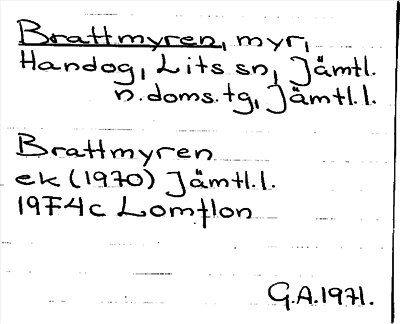 Brattmyren, myr,
Handog, Lits sn, Jämtl.
n.doms.tg, Jämtl.l.
Brattmyren
ek (1970) Jämtl.l.
19F4c Lomtlon
G.A.1971.